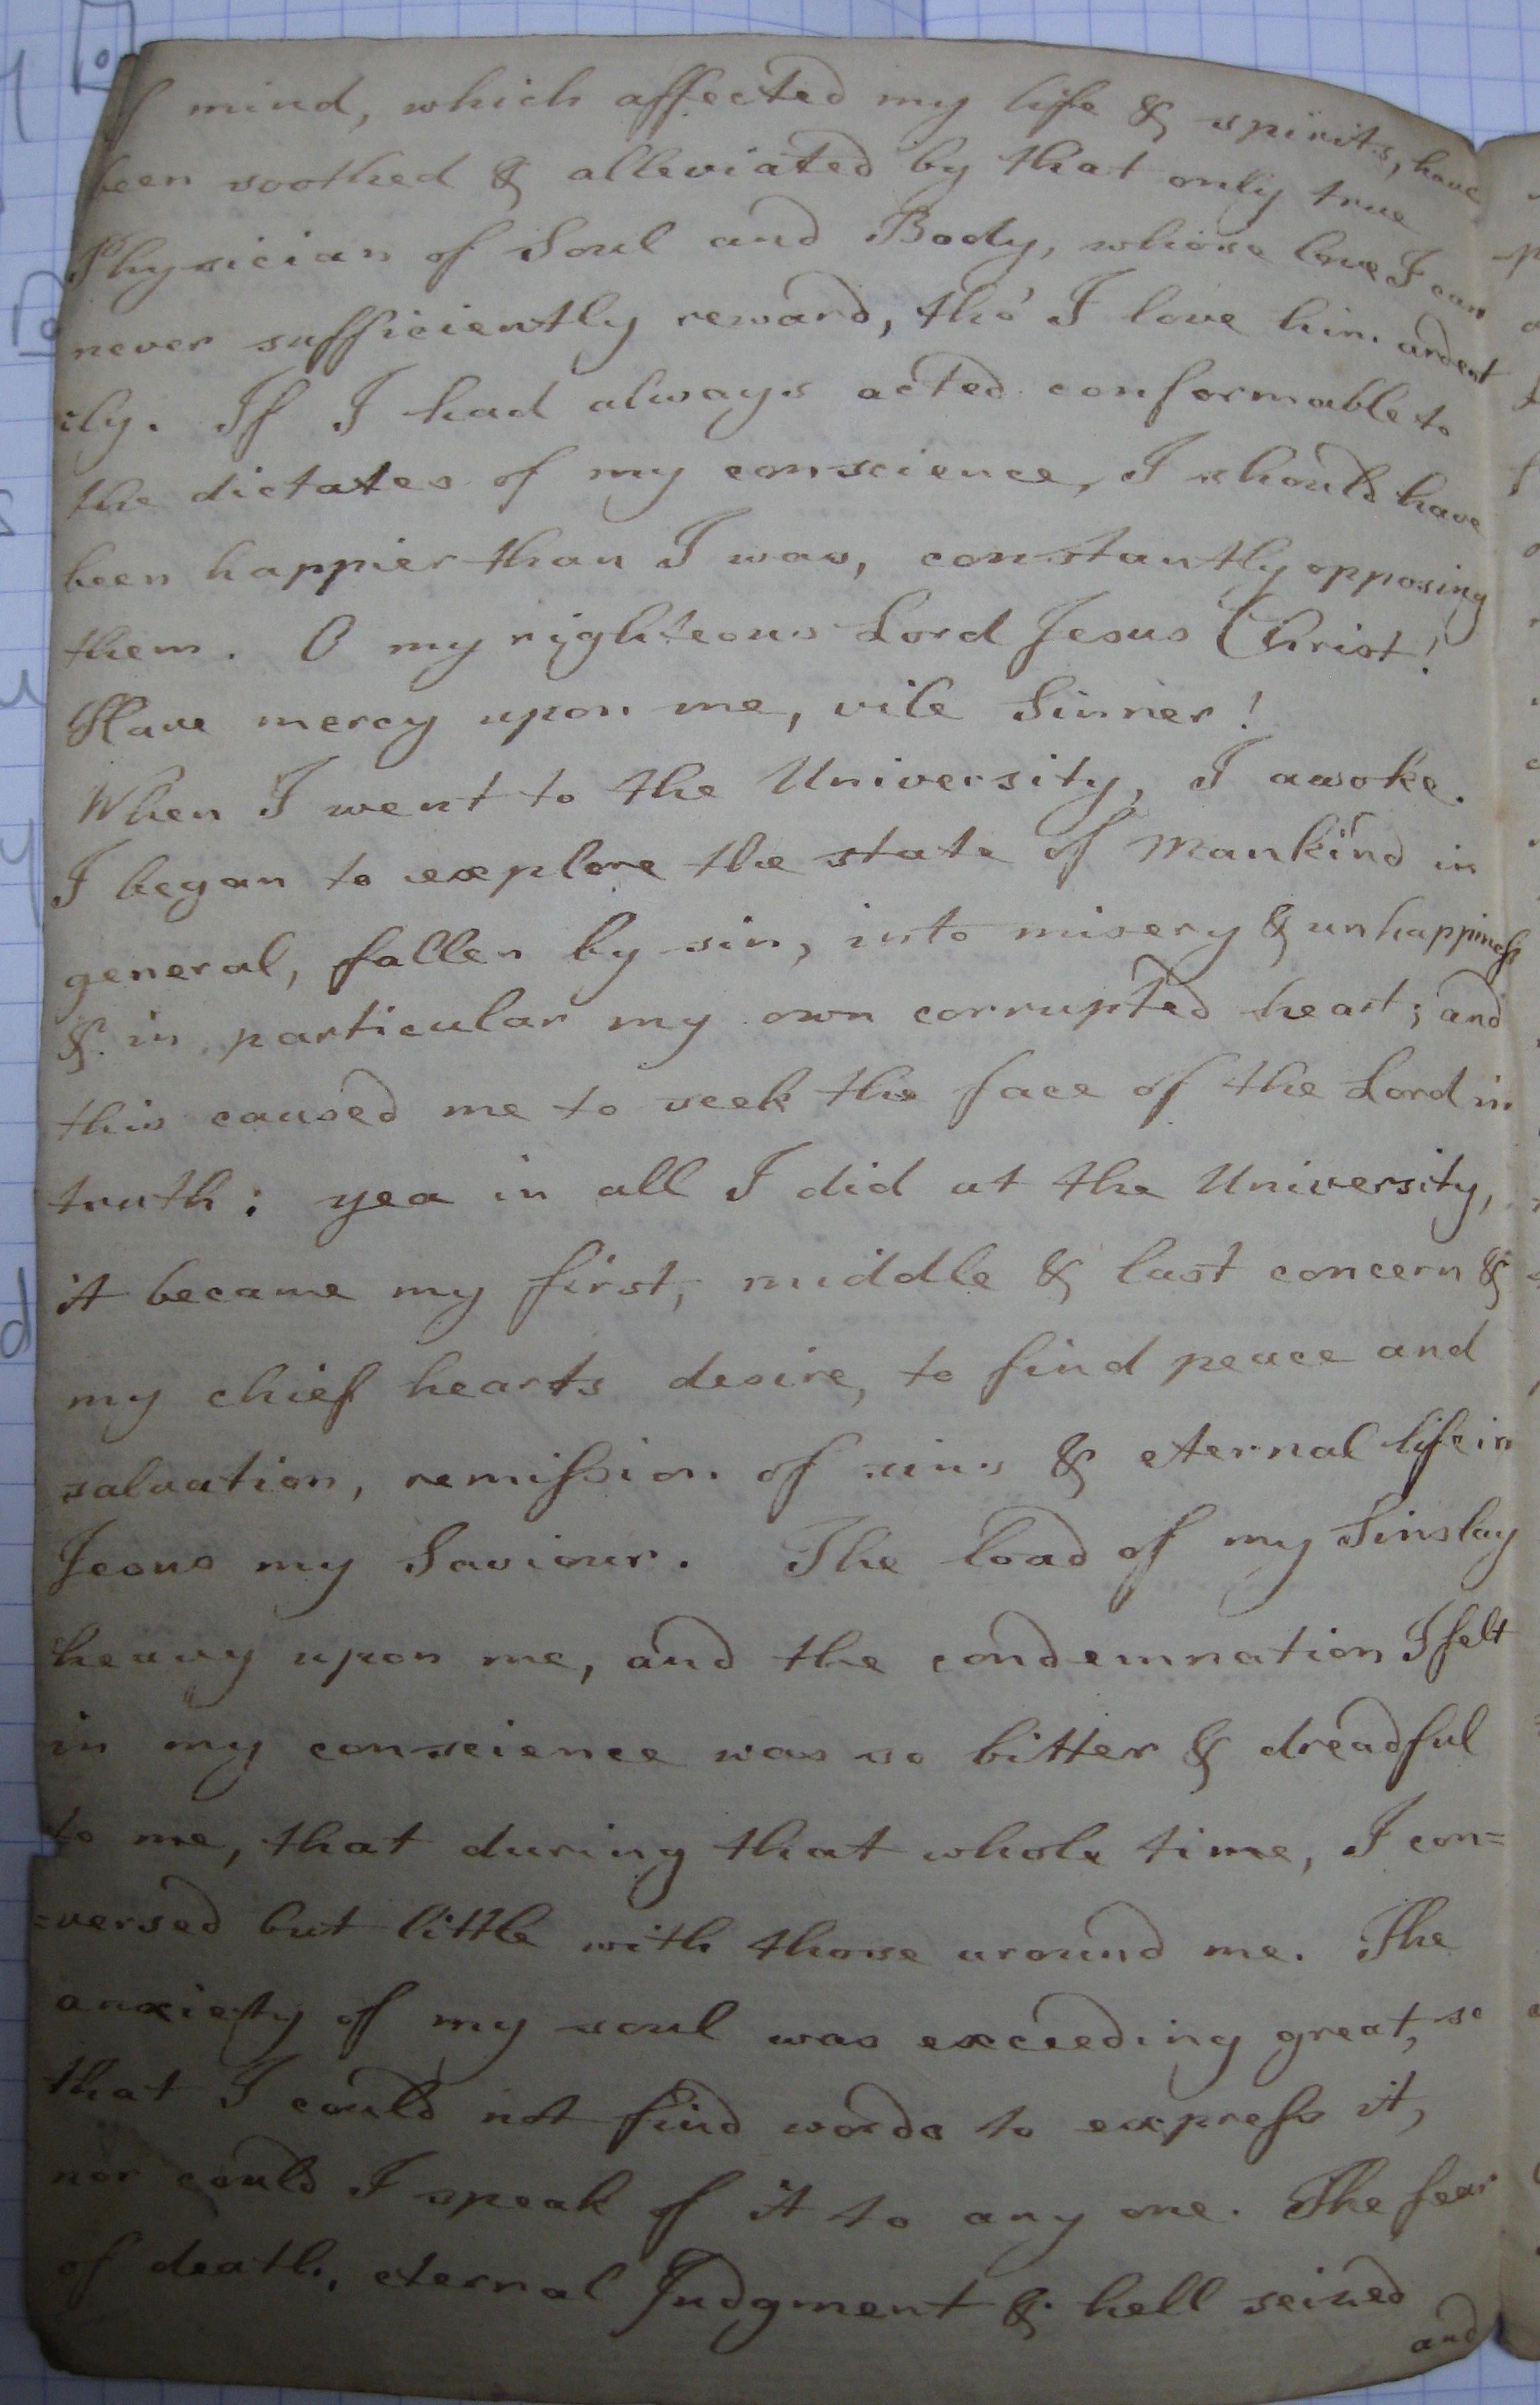 of mind, which affected my life & spirits, have
been soothed & alleviated by that only true
Physician of Soul and Body, whose love I can
never sufficiently reward, tho' I love him ardent
=ly. If I had always acted conformable to
the dictates of my conscience, I should have
been happier than I was, constantly opposing
them. O my righteous Lord Jesus Christ!
Have mercy upon me, vile Sinner!
When I went to the University, I awoke.
I began to explore the state of Mankind in
general, fallen by sin, into misery & unhappiness
& in particular my own corrupted heart; and
this caused me to seek the face of the Lord in
truth: yea in all I did at the University,
it became my first, middle & last concern &
my chief hearts desire, to find peace and
salvation, remission of sins & eternal life in
Jesus my Saviour. The load of my Sins lay
heavy upon me, and the condemnation I felt
in my conscience was so bitter & dreadful
to me, that during that whole time, I con=
=versed but little with those around me. The
anxiety of my soul was exceeding great, so
that I could not find words to express it,
nor could I speak of it to any one. The fear
of death, eternal Judgment & hell seized
and